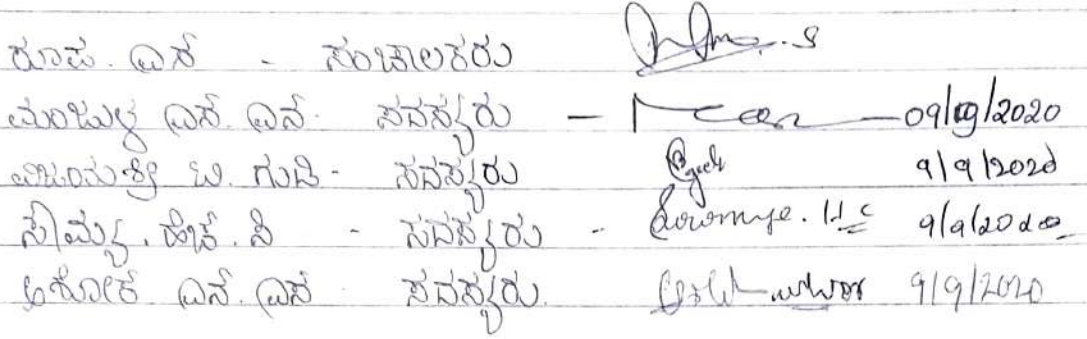 ರೂಪ. ಎಸ್ - ಸಂಚಾಲಕರು
ಮಂಜುಳ ಎಸ್. ಎನ್. ಸದಸ್ಯರು - 09/09/2020
ವಿಜಯಶ್ರೀ ಬಿ. ಗುಡಿ - ಸದಸ್ಯರು 9/9/2020
ಸೌಮ್ಯ. ಹೆಚ್. ಸಿ - ಸದಸ್ಯರು - Sowmya. H C 9/9/2020
ಅಶೋಕ ಎನ್. ಎಸ್ ಸದಸ್ಯರು. 9/9/2020